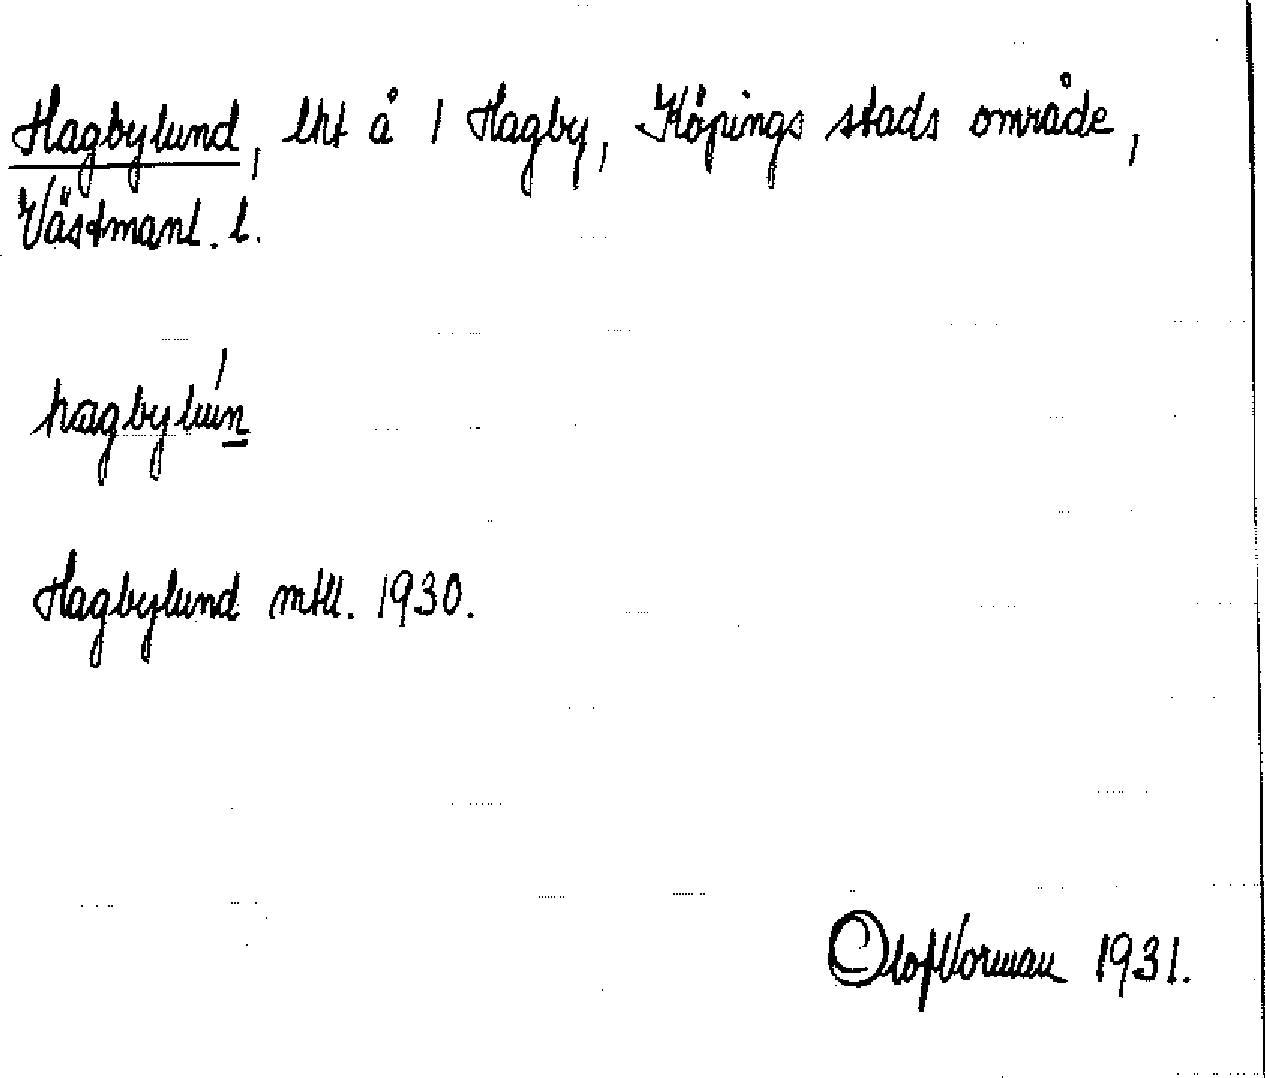 Hagbylund, lht å 1 Hagby, Köpings stads område,
Västmanl. l.
hagbylún
Hagbylund mtll. 1930.
Olof Vorman 1931.